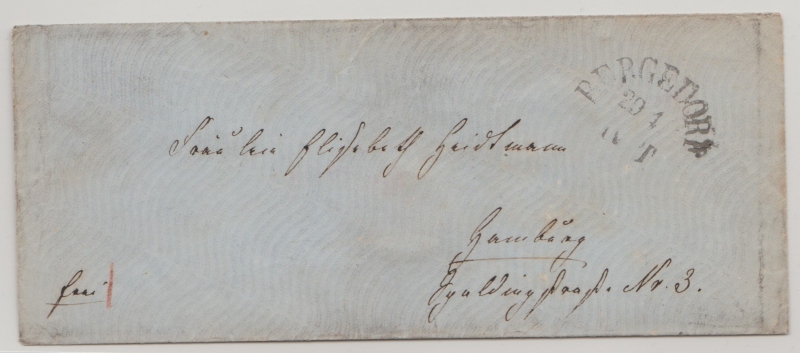 BERGEDORF
20 1
N T
Fräulein Elisabeth Heidtmann
Hamburg
Spaldingstraße Nr. 3.
frei